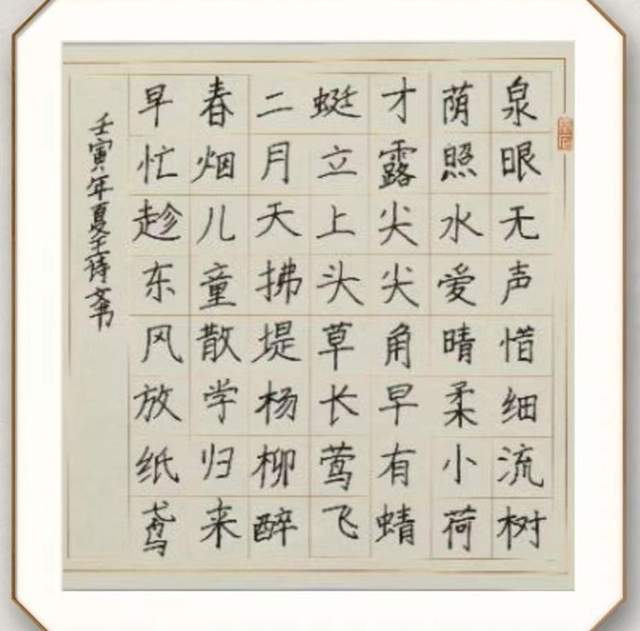 泉眼无声惜细流树
荫照水爱晴柔小荷
才露尖尖角早有蜻
蜓立上头草长莺飞
二月天拂堤杨柳醉
春烟儿童散学归来
早忙趁东风放纸鸢
壬寅年夏王诗文书